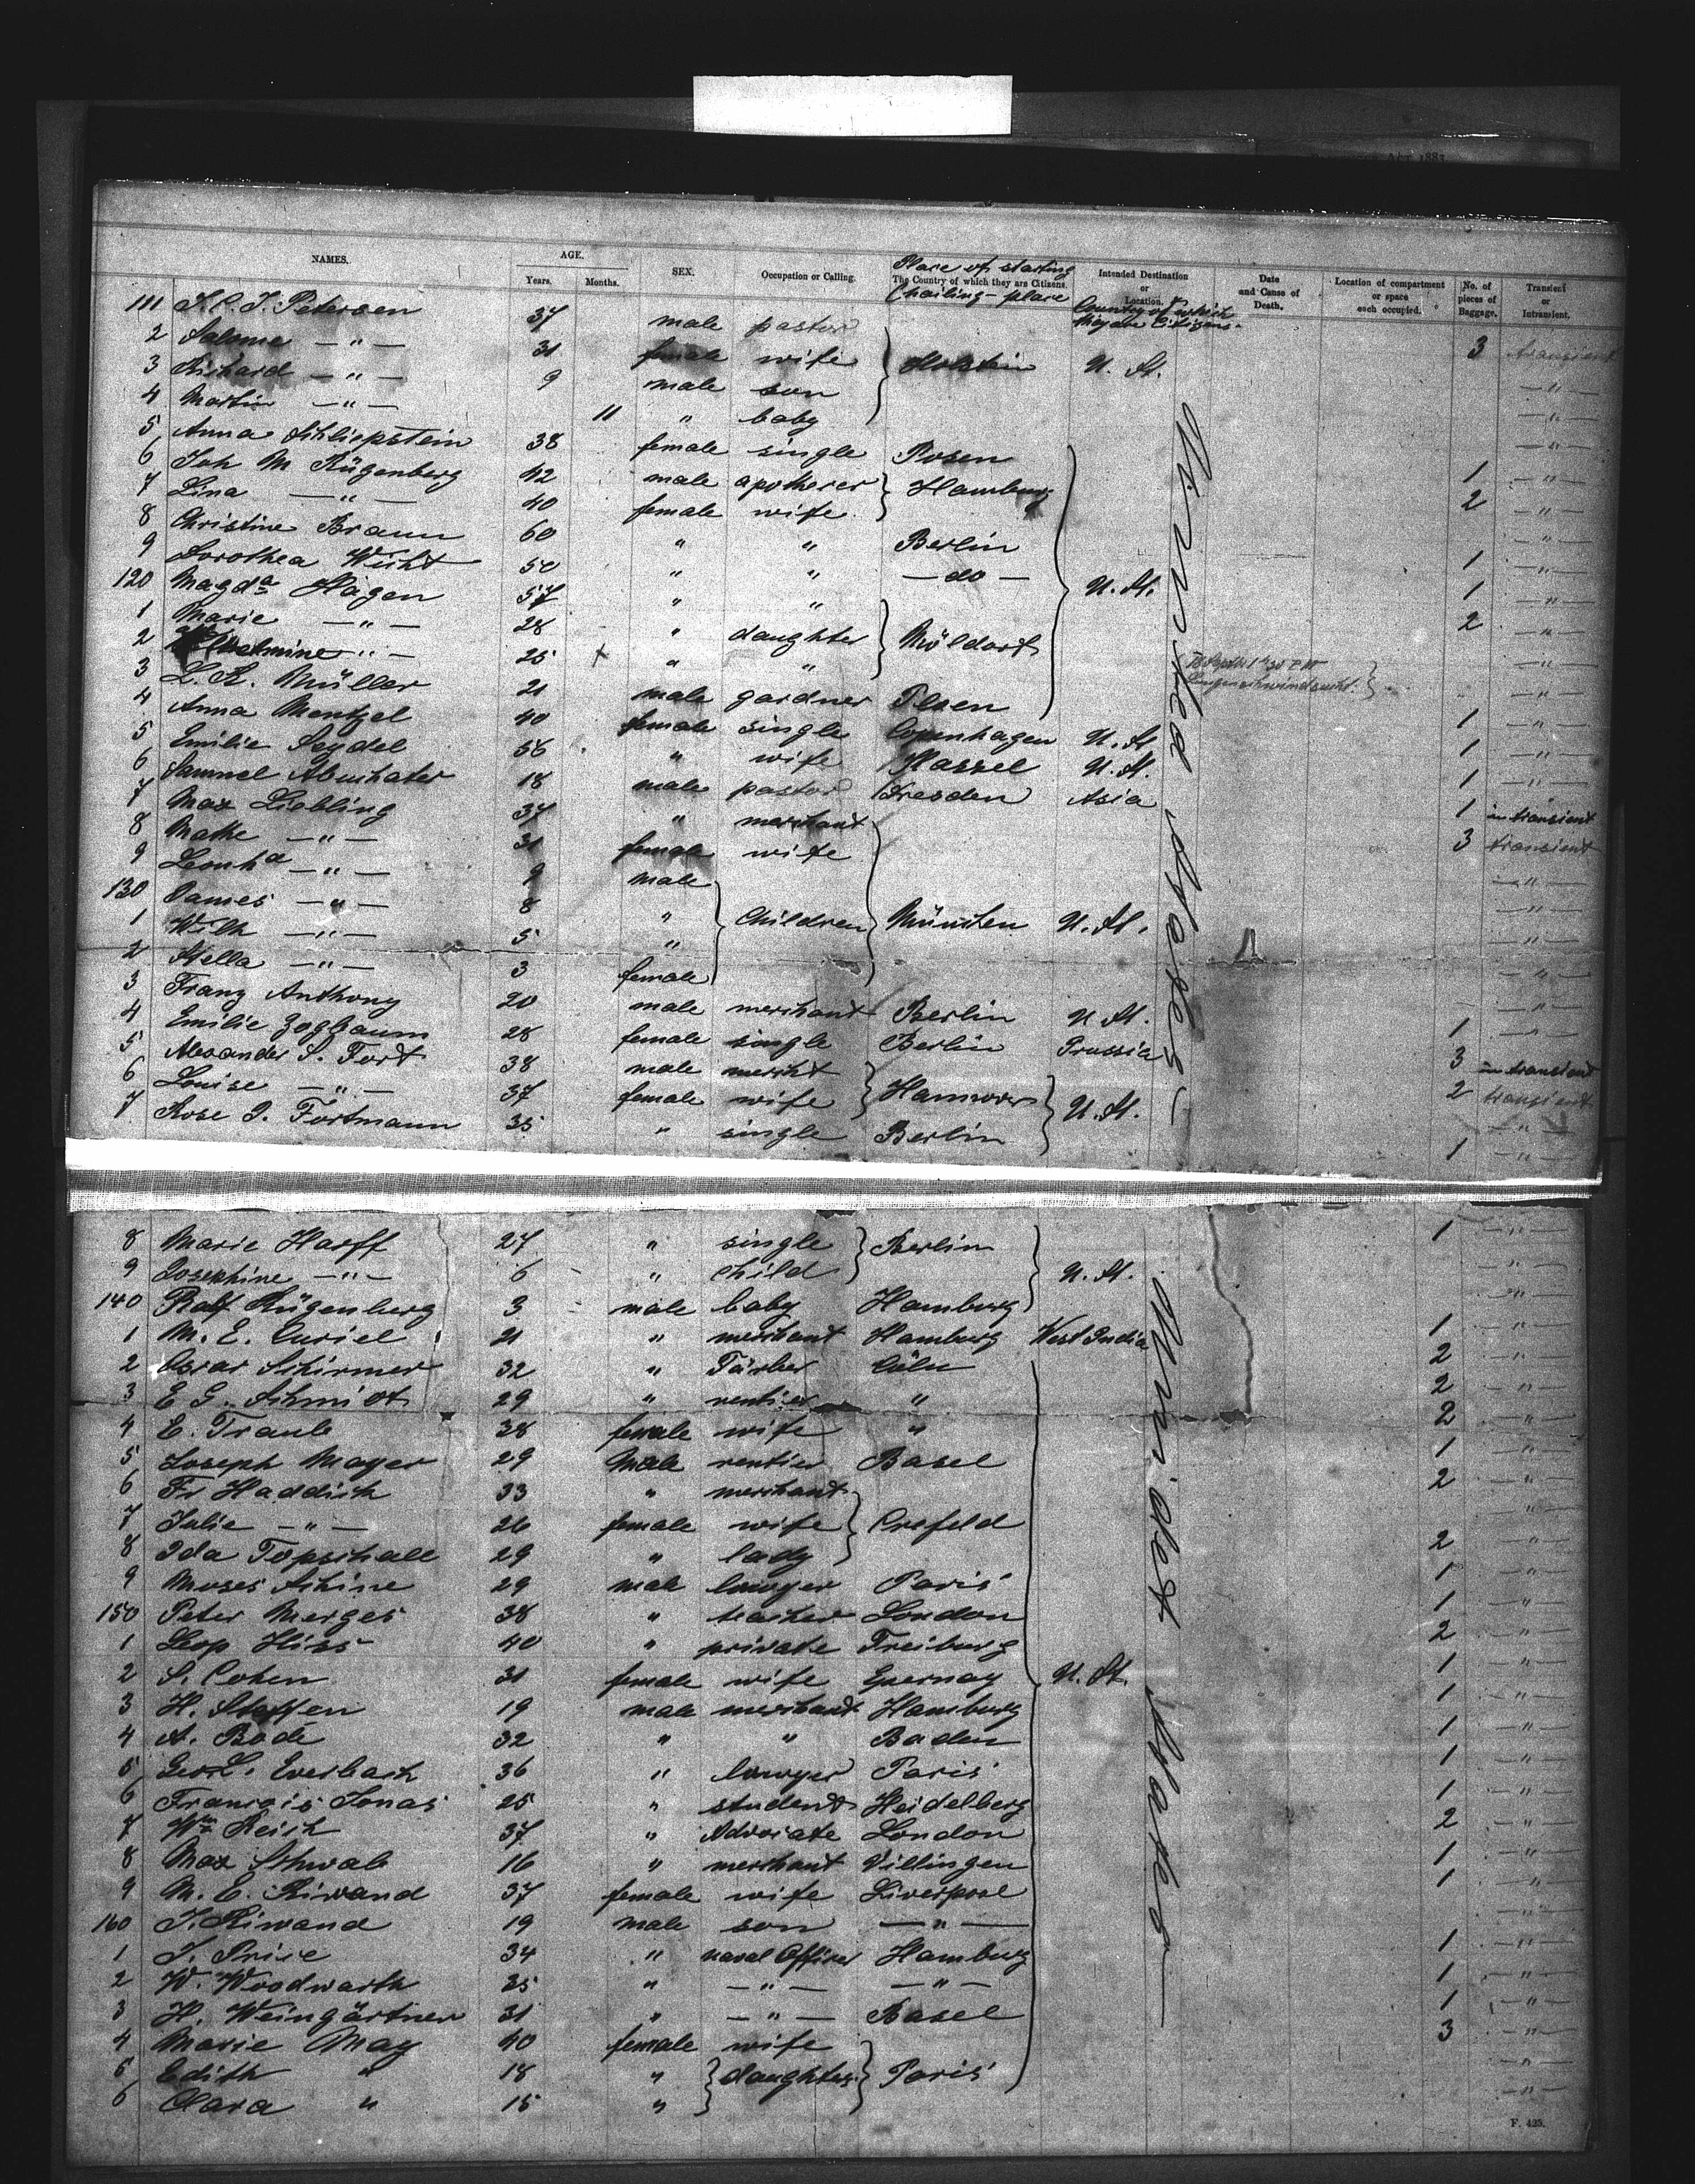 PASSENGER ACT 1882
NAMES. AGE. SEX. Occupation or Calling. Place of starting Intended Destination Date Location of compartment No. of Transient
Years. Months. The Country of which they are Citizens. or and Cause of or space pieces of or
(hailing-place Location. Country of which they are Citizens. Death. each occupied. Baggage. Intransient.
111 Petersen 37 male pastor
2 Salome —"— 31 female wife Holstein U. St. 3 transient
3 Richard —"— 9 male son —"—
4 Martin —"— 11 " baby —"—
5 Anna Schliepstein 38 female single Posen —"—
6 Joh M Rügenberg 42 male apothecer Hamburg 1 —"—
7 Lina —"— 40 female wife 2 —"—
8 Christine Braun 60 " " Berlin —"—
9 Dorothea Wicht 50 " " —do— 1 —"—
120 Magda Hagen 57 " " U. St. 1 —"—
1 Marie —"— 28 " daughter Möldorf 2 —"—
2 Wilhelmine —"— 25 x " " —"—
3 L. R. Müller 21 male gardner Ploen —"—
4 Anna Mentzel 40 female single Copenhagen U. St 1 —"—
5 Emilie Seydel 56 " wife Kassel U. St. 1 —"—
6 Samuel Abuchater 18 male pastor Dresden Asia 1 —"—
7 Max Liebling 37 " merchant 1 in transient
8 Mathe —"— 31 female wife 3 transient
9 Leonhd —"— 9 male —"—
130 James —"— 8 " Children München U. St. —"—
1 Wilh —"— 5 " —"—
2 Stella —"— 3 female —"—
3 Franz Anthony 20 male merchant Berlin U. St. —"—
4 Emilie Zogbaum 28 female single Berlin Prussia 1 —"—
5 Alexander S. Fort 38 male mercht 3 in transient
6 Louise —"— 37 female wife Hannover U. St. 2 transient
7 Rose J. Fortmann 35 " single Berlin 1 —"—
8 Marie Harff 27 " single Berlin 1 —"—
9 Josephine —"— 6 " child U. St. —"—
140 Ralf Rügenberg 3 male baby Hamburg —"—
1 M. E. Curiel 21 " merchant Hamburg West India 1 —"—
2 Oscar Schirmer 32 " Färber Cöln 2 —"—
3 E G. Schmidt 29 " rentier " 2 —"—
4 E. Traub 38 female wife " 2 —"—
5 Joseph Mayer 29 Male rentier Basel 1 —"—
6 Fr Haddich 33 " merchant 2 —"—
7 Julie —"— 26 female wife Crefeld —"—
8 Ida Topschall 29 " lady 2 —"—
9 Moses Schine 29 male lawyer Paris 1 —"—
150 Peter Merges 38 " teacher London 1 —"—
1 Leop Hiss 40 " private Freiburg 2 —"—
2 S. Cohen 31 female wife Epernay U. St. 1 —"—
3 H. Steffen 19 male merchant Hamburg 1 —"—
4 A. Bode 32 " " Baden 1 —"—
5 Geo L. Everbach 36 " lawyer Paris 1 —"—
6 Francois Jonas 25 " student Heidelberg 1 —"—
7 Wm Reich 37 " Advocate London 2 —"—
8 Max Schwab 16 " merchant Villingen 1 —"—
9 M. E. Kiwand 37 female wife Liverpool 1 —"—
160 J. Kiwand 19 male son —"— —"—
1 J. Price 34 " naval Officer Hamburg 1 —"—
2 W. Woodwarth 35 " —"— —"— 1 —"—
3 H. Weingärtner 31 " —"— Basel 1 —"—
4 Marie May 40 female wife 3 —"—
5 Edith " 18 " daughters Paris —"—
6 Clara " 15 " —"—
F. 425.